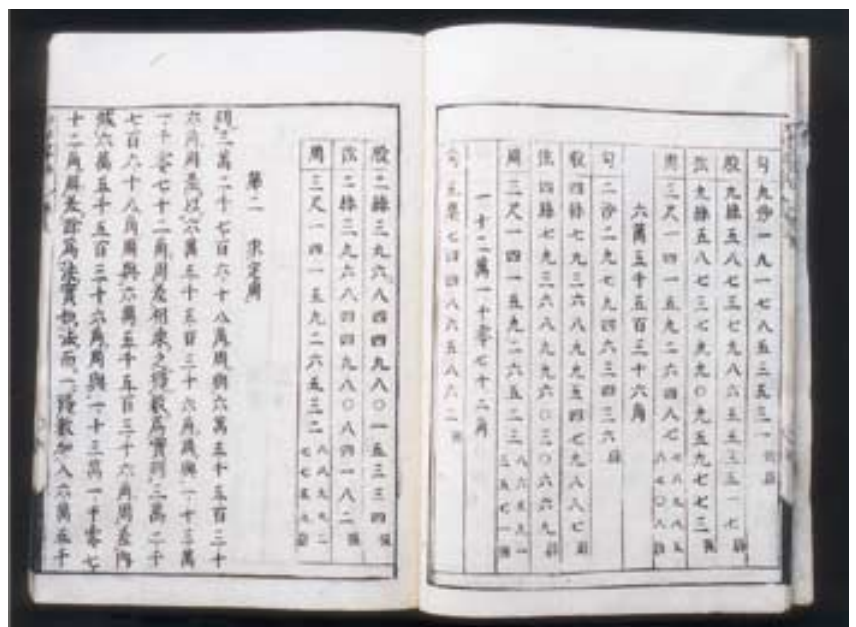 句九沙一九一七八五三五三一弱
股九絲五八七三七九八六五五三五一七弱
弦九絲五八七三七九九〇九五九七七三強
周三尺一四一五九二六四八七七六九八五六七〇八弱
六萬五千五百三十六角
句二沙二九七九四六三四三六弱
股四絲七九三六八九九五四七九八八七弱
弦四絲七九三六八九九六〇三〇六六九弱
周三尺一四一五九二六五二三八六五九一三五七一強
一十三萬一千零七十二角
句五纖七四四八六五八六二強
股二絲三九六八四四九八〇一五三三四強
弦二絲三九六八四四九八〇八四一八二強
周三尺一四一五九二六五三二八八九九二七七五九弱
第二 求定周
列三萬二千七百六十八角周與六萬五千五百三十
六角周差以六萬五千五百三十六角周與一十三萬
一千零七十二角周差相乘之得數爲實列三萬二千
七百六十八角周與六萬五千五百三十六角周差内
減六萬五千五百三十六角周與一十三萬一千零七
十二角周差餘爲法實如法而一得數加入六萬五千